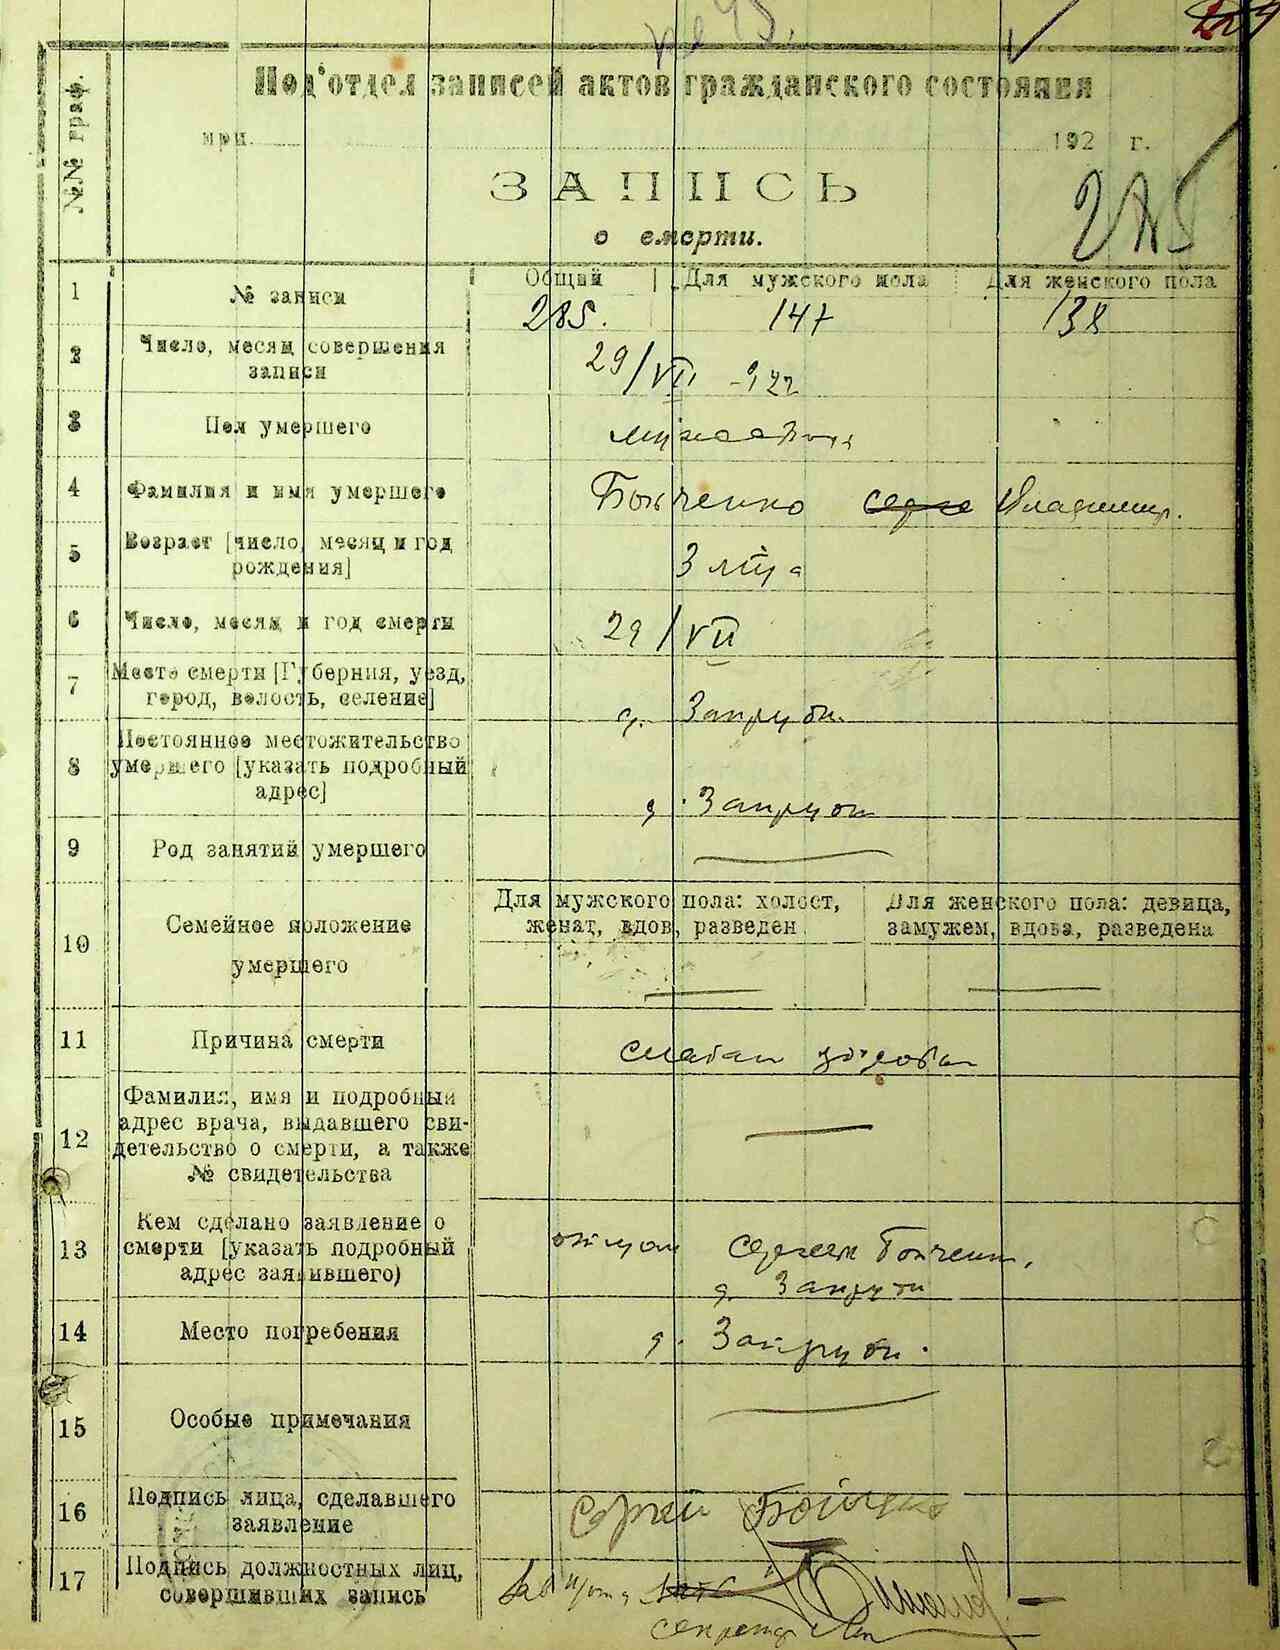 № 45.
Под'отдел записей актов гражданского состояния
при 192 г.
ЗАПИСЬ
о смерти.
№№ граф.
Общий Для мужского пола Для женского пола
1 № записи 285. 147 138
2 Число, месяц совершения
записи 29/VII 922
3 Пол умершего
4 Фамилия и имя умершего Бойченко Владимир.
5 Возраст [число, месяц и год
рождения] 3
6 Число, месяц и год смерти 29/VII
7 Место смерти [Губерния, уезд,
город, волость, селение] д. Запруды.
8 Постоянное местожительство
умершего [указать подробный
адрес] д. Запруды
9 Род занятий умершего
Для мужского пола: холост, Для женского пола: девица,
женат, вдов, разведен замужем, вдова, разведена
10 Семейное положение
умершего
11 Причина смерти слабая
12 Фамилия, имя и подробный
адрес врача, выдавшего сви-
детельство о смерти, а также
№ свидетельства
13 Кем сделано заявление о
смерти [указать подробный
адрес заявившего) отцом Сергеем Бойченко,
д. Запруды
14 Место погребения д. Запруды.
15 Особые примечания
16 Подпись лица, сделавшего
заявление Сергей Бойченко
17 Подпись должностных лиц,
совершивших запись
секретарь